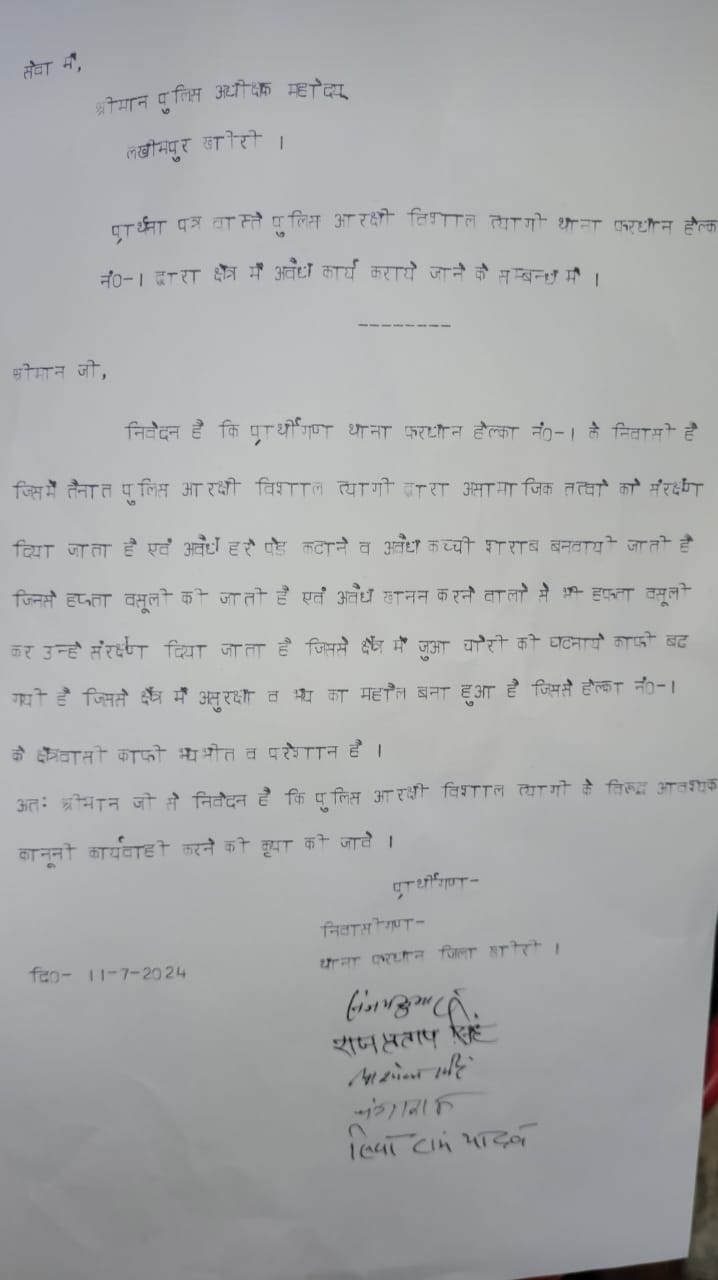 सेवा में,
श्रीमान पुलिस अधीक्षक महोदय
लखीमपुर खीरी ।
प्रार्थना पत्र वास्ते पुलिस आरक्षी विशाल त्यागी थाना फरधान हल्का
नं0-1 द्वारा क्षेत्र में अवैध कार्य कराये जाने के सम्बन्ध में ।
--------
श्रीमान जी,
निवेदन है कि प्रार्थीगण थाना फरधान हल्का नं0-1 के निवासी है
जिसमें तैनात पुलिस आरक्षी विशाल त्यागी द्वारा असामाजिक तत्वों को संरक्षण
दिया जाता है एवं अवैध हरे पेड कटाने व अवैध कच्ची शराब बनवायी जाती है
जिनसे हफ्ता वसूली की जाती है एवं अवैध खनन करने वालो से भी हफ्ता वसूली
कर उन्हे संरक्षण दिया जाता है जिससे क्षेत्र में जुआ चोरी की घटनाये काफी बढ
गयी है जिससे क्षेत्र में असुरक्षा व भय का महौल बना हुआ है जिससे हल्का नं0-1
के क्षेत्रवासी काफी भयभीत व परेशान है ।
अतः श्रीमान जी से निवेदन है कि पुलिस आरक्षी विशाल त्यागी के विरूद्ध आवश्यक
कानूनी कार्यवाही करने की कृपा की जावे ।
प्रार्थीगण-
निवासीगण-
थाना फरधान जिला खीरी ।
दि0- 11-7-2024
राज प्रताप सिंह
राम यादव